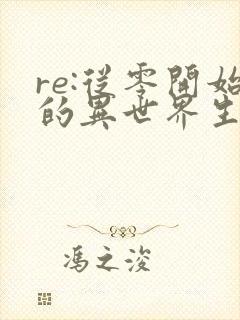 re:從零開始
的異世界生
馮之浚